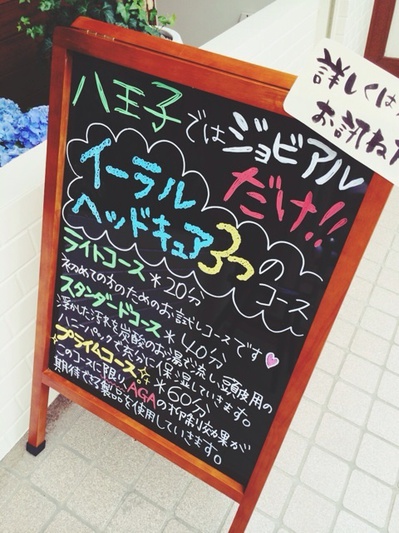 八王子では
ジョビアル
だけ!!
イーラル
ヘッドキュア
3つの
コース
ライトコース＊20分
初めての方のためのお試しコースです♥
スタンダードコース＊40分
浮かした汚れを炭酸のお湯で流し、頭皮用の
ハニーパックで充分に保湿していきます。
プライムコース＊60分
このコースに限り、AGAの抑制効果が
期待できる製品を使用していきます。
詳しくは
お訊ね